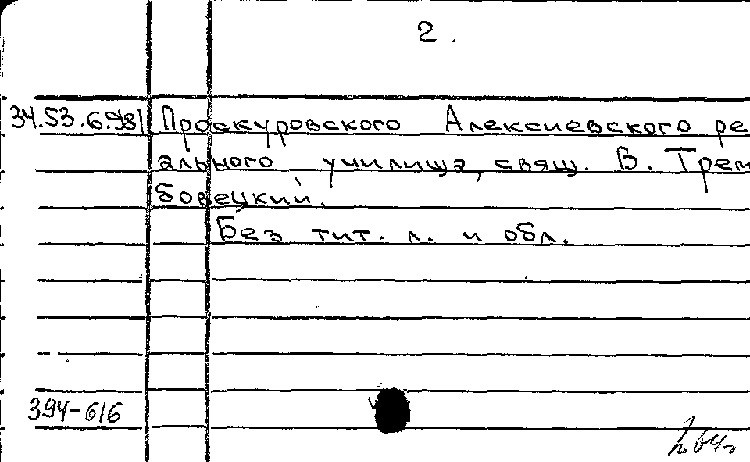 2.
34.53.6.98 Проскуровского Алексиевского ре
ального училища, свящ. В. Трем
бовецкий.
Без тит. л. и обл.
394-616